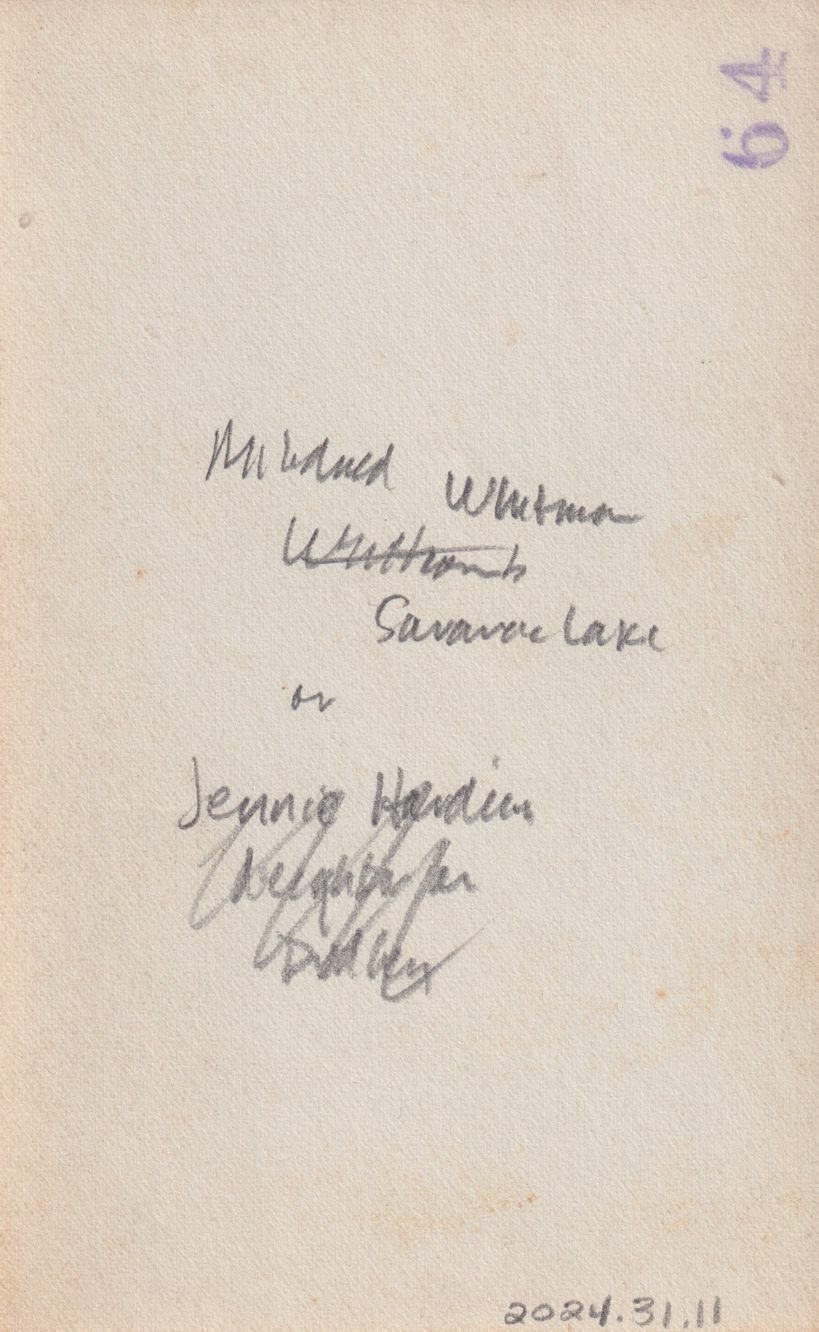 64
Mildred Whitman
Whitcomb
Saranac Lake
or
Jennie Hardin
2024.31.11